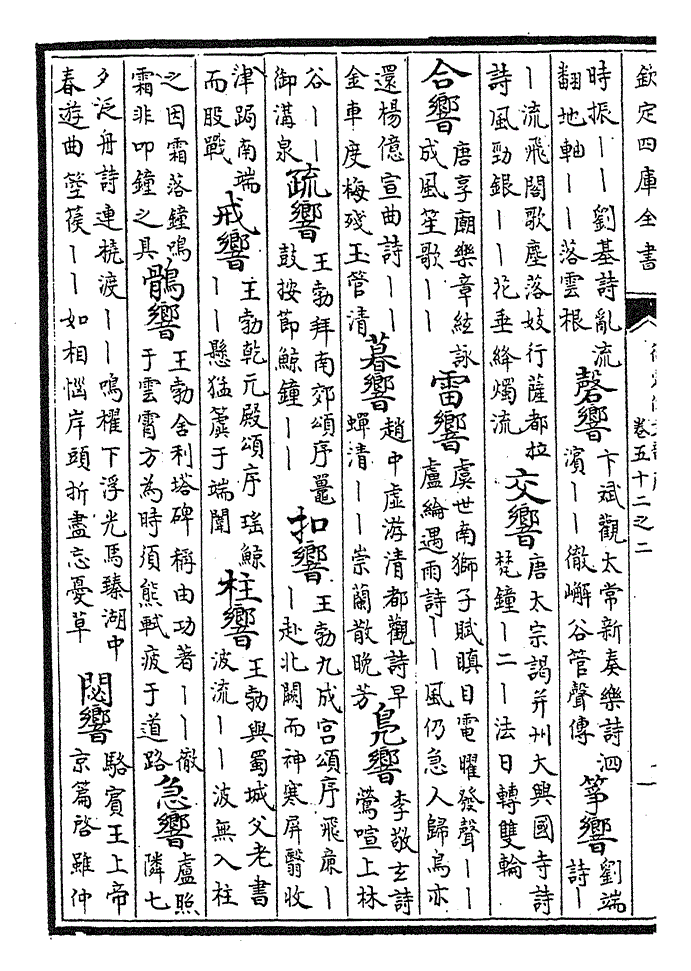 欽定四庫全書
卷五十二之二
時振丨丨劉基詩亂流
翻地軸丨丨落雲根
磬響
卞斌觀太常新奏樂詩泗
濱丨丨徹嶰谷管聲傳
箏響
劉端
詩丨
丨流飛閣歌塵落妓行薩都拉
詩風勁銀丨丨花垂絳燭流
交響
唐太宗謁并州大興國寺詩
梵鐘丨二丨法日轉雙輪
合響
唐享廟樂章絃詠
成風笙歌丨丨
雷響
虞世南獅子賦瞋目電曜發聲丨丨
盧綸遇雨詩丨丨風仍急人歸鳥亦
還楊億宣曲詩丨丨
金車度梅殘玉管清
暮響
趙中虛游清都觀詩早
蟬清丨丨崇蘭散晚芳
鳧響
李敬玄詩
鶯喧上林
谷丨丨
御溝泉
疏響
王勃拜南郊頌序鼉
鼓按節鯨鐘丨丨
扣響
王勃九成宮頌序飛廉丨
丨赴北闕而神寒屏翳收
津跼南端
而股戰
戒響
王勃乾元殿頌序瑤鯨
丨丨懸猛虡于端闈
柱響
王勃與蜀城父老書
波流丨丨波無入柱
之因霜落鐘鳴
霜非叩鐘之具
鶻響
王勃舍利塔碑稱由功著丨丨徹
于雲霄方為時須熊軾疲于道路
急響
盧照
隣七
夕泛舟詩連橈渡丨丨鳴櫂下浮光馬臻湖中
春遊曲箜篌丨丨如相惱岸頭折盡忘憂草
閟響
駱賓王上帝
京篇啓雖仲